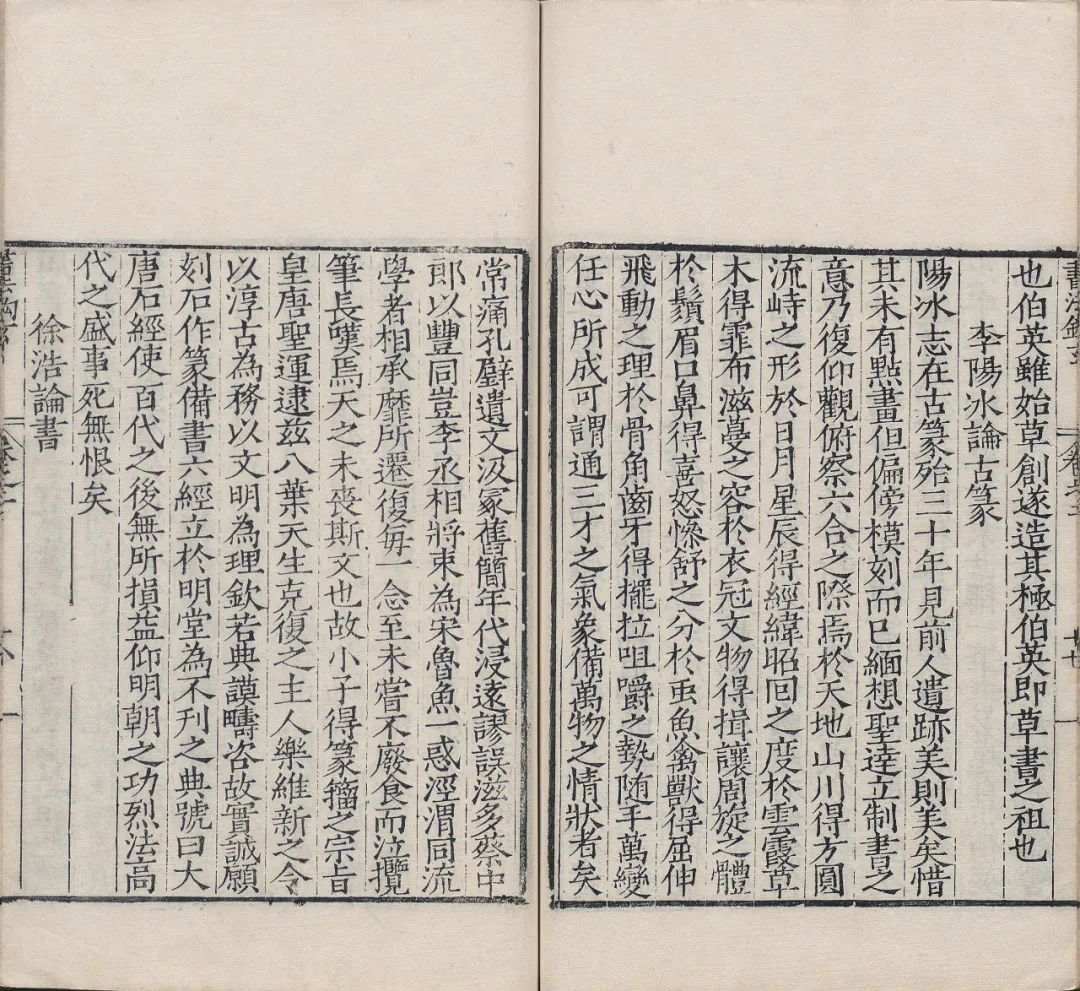 也伯英雖始草創遂造其極伯英即草書之祖也
李陽冰論古篆
陽冰志在古篆殆三十年見前人遺跡美則美矣惜
其未有點畫但偏傍模刻而已緬想聖達立制書之
意乃復仰觀俯察六合之際焉於天地山川得方圓
流峙之形於日月星辰得經緯昭回之度於雲霞草
木得霏布滋蔓之容於衣冠文物得揖讓周旋之體
於鬚眉口鼻得喜怒慘舒之分於虫魚禽獸得屈伸
飛動之理於骨角齒牙得擺拉咀嚼之勢随手萬變
任心所成可謂通三才之氣象備萬物之情狀者矣
常痛孔壁遺文汲冢舊簡年代浸遠謬誤滋多蔡中
郎以豐同豈李丞相將朿為宋魯魚一惑涇渭同流
學者相承靡所遷復毎一念至未嘗不廢食而泣攬
筆長嘆焉天之未喪斯文也故小子得篆籀之宗旨
皇唐聖運逮兹八葉天生克復之主人樂維新之令
以淳古為務以文明為理欽若典謨疇咨故實誠願
刻石作篆備書六經立於明堂為不刊之典號曰大
唐石經使百代之後無所損益仰明朝之功烈法高
代之盛事死無恨矣
徐浩論書